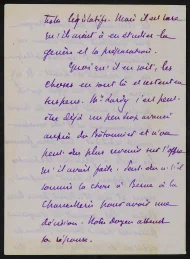 texte législatifs. Mais il est rare
qu'il ait à en étudier la
genèse et la préparation.
Quoi qu'il en soit, les
choses en sont là et restent en
suspens. Me Lardy s'est peut-
être déjà un peu trop avancé
auprès du Bâtonnier et n'ose
peut-être plus revenir sur l'offre
qu'il avait faite. Peut-être a-t-il
soumis la chose à Berne à la
Chancellerie pour avoir une
décision. Notre doyen attend
la réponse.